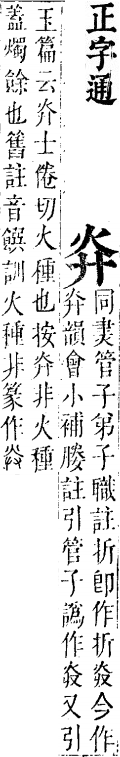 正字通
灷
同㶳管子弟子職註折卽作折㷂今作
灷韻會小補媵註引管子譌作㷂又引
玉篇云灷士倦切火種也按灷非火種
葢燭餘也舊註音饌訓火種非篆作㷂